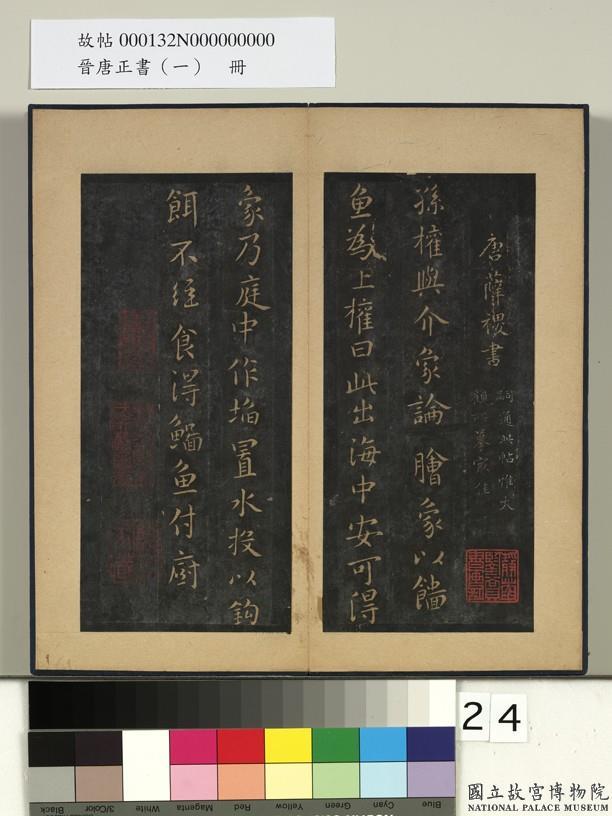 故帖 000132N000000000
晉唐正書（一） 冊
唐薛稷書
孫權與介象論膾象以鯔
魚為上權曰此出海中安可得
象乃庭中作埳置水投以鈎
餌不經食得鯔魚付廚
24
Blue Cyan Green Yellow Red Magenta White 3/Color Black
國立故宮博物院
NATIONAL PALACE MUSEUM